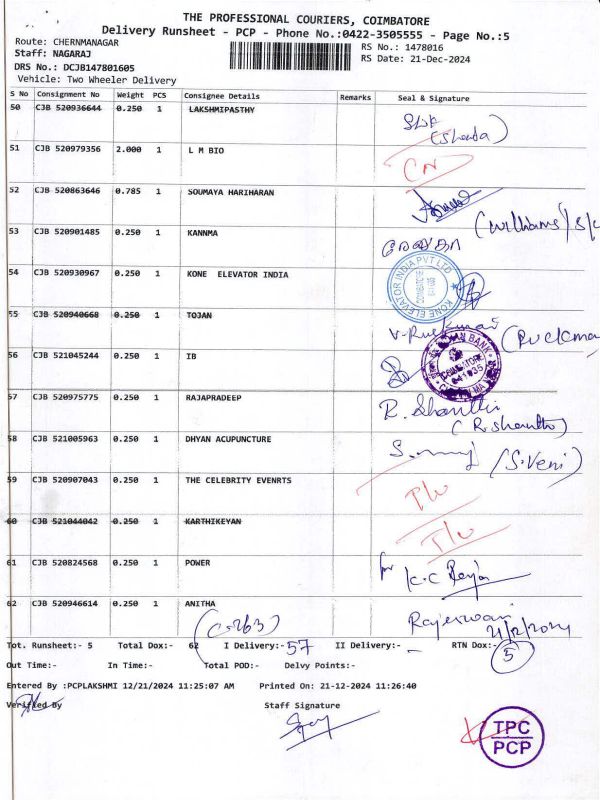 THE PROFESSIONAL COURIERS, COIMBATORE
Delivery Runsheet - PCP - Phone No.:0422-3505555 - Page No.:5
Route: CHERNMANAGAR
Staff: NAGARAJ
RS No.: 1478016
DRS No.: DCJB147801605
RS Date: 21-Dec-2024
Vehicle: Two Wheeler Delivery
S No Consignment No Weight PCS Consignee Details Remarks Seal & Signature
50 CJB 520936644 0.250 1 LAKSHMIPASTHY
51 CJB 520979356 2.000 1 L M BIO
52 CJB 520863646 0.785 1 SOUMAYA HARIHARAN
(Williams) S/c
53 CJB 520901485 0.250 1 KANNMA
54 CJB 520930967 0.250 1 KONE ELEVATOR INDIA
KONE ELEVATOR INDIA PVT LTD
55 CJB 520940668 0.250 1 TOJAN
56 CJB 521045244 0.250 1 IB
57 CJB 520975775 0.250 1 RAJAPRADEEP
R. Shanthi
(R. Shanthi)
58 CJB 521005963 0.250 1 DHYAN ACUPUNCTURE
(S. Veni)
59 CJB 520907043 0.250 1 THE CELEBRITY EVENRTS
60 CJB 521044042 0.250 1 KARTHIKEYAN
61 CJB 520824568 0.250 1 POWER
62 CJB 520946614 0.250 1 ANITHA
Rajeswari
21/12/2024
Tot. Runsheet:- 5 Total Dox:- 62 I Delivery:- 57 II Delivery:- - RTN Dox:- 5
Out Time:- In Time:- Total POD:- Delvy Points:-
Entered By :PCPLAKSHMI 12/21/2024 11:25:07 AM Printed On: 21-12-2024 11:26:40
Verified By Staff Signature
TPC
PCP